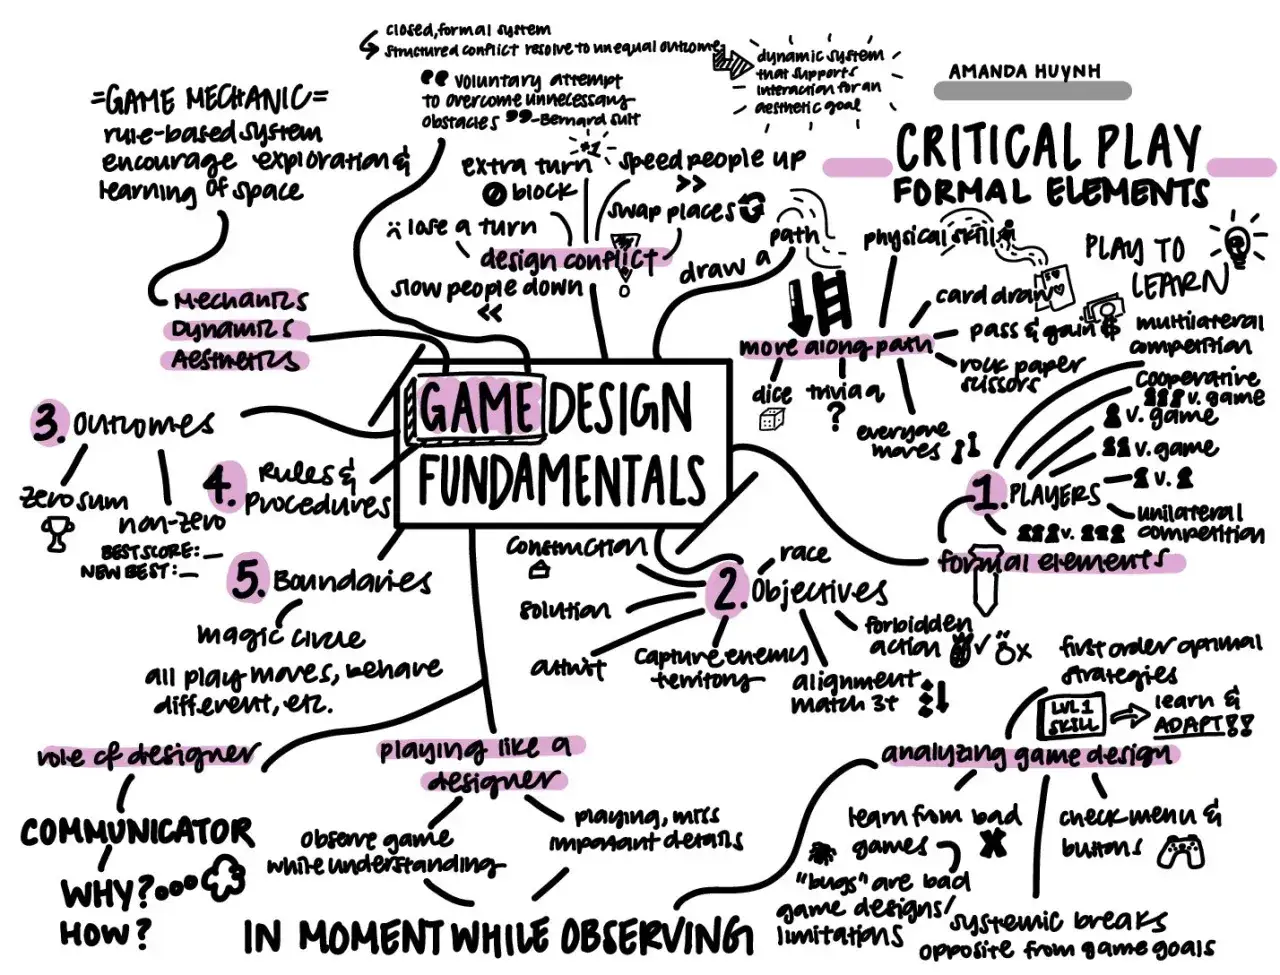 closed, formal system
structured conflict resolve to unequal outcome
dynamic system
that supports
interaction for an
aesthetic goal
AMANDA HUYNH
CRITICAL PLAY
FORMAL ELEMENTS
=GAME MECHANIC=
rule-based system
encourage exploration &
learning of space
"voluntary attempt
to overcome unnecessary
obstacles" -Bernard suit
#1
extra turn
block
lose a turn
speed people up
>>
swap places
design conflict
slow people down
<<
draw a
path
physical skill
card draw
pass & gain $
rock paper
scissors
move along path
dice
trivia q
?
everyone
moves
PLAY TO
LEARN
Mechanics
Dynamics
Aesthetics
GAME DESIGN
FUNDAMENTALS
multilateral
competition
cooperative
v. game
v. game
v. game
v.
unilateral
competition
v.
1. PLAYERS
formal elements
3. Outcomes
zero sum
non-zero
BEST SCORE:_
NEW BEST:_
4. Rules &
Procedures
5. Boundaries
magic circle
all play moves, behave
different, etc.
2. Objectives
construction
solution
race
capture enemy
territory
alignment
match 3+
forbidden
action
x
role of designer
COMMUNICATOR
WHY?
HOW?
playing like a
designer
observe game
while understanding
playing, miss
important details
IN MOMENT WHILE OBSERVING
first order optimal
strategies
LVL 1
SKILL
learn &
ADAPT!!
analyzing game design
learn from bad
games
"bugs" are bad
game designs/
limitations
systemic breaks
opposite from game goals
check menu &
buttons